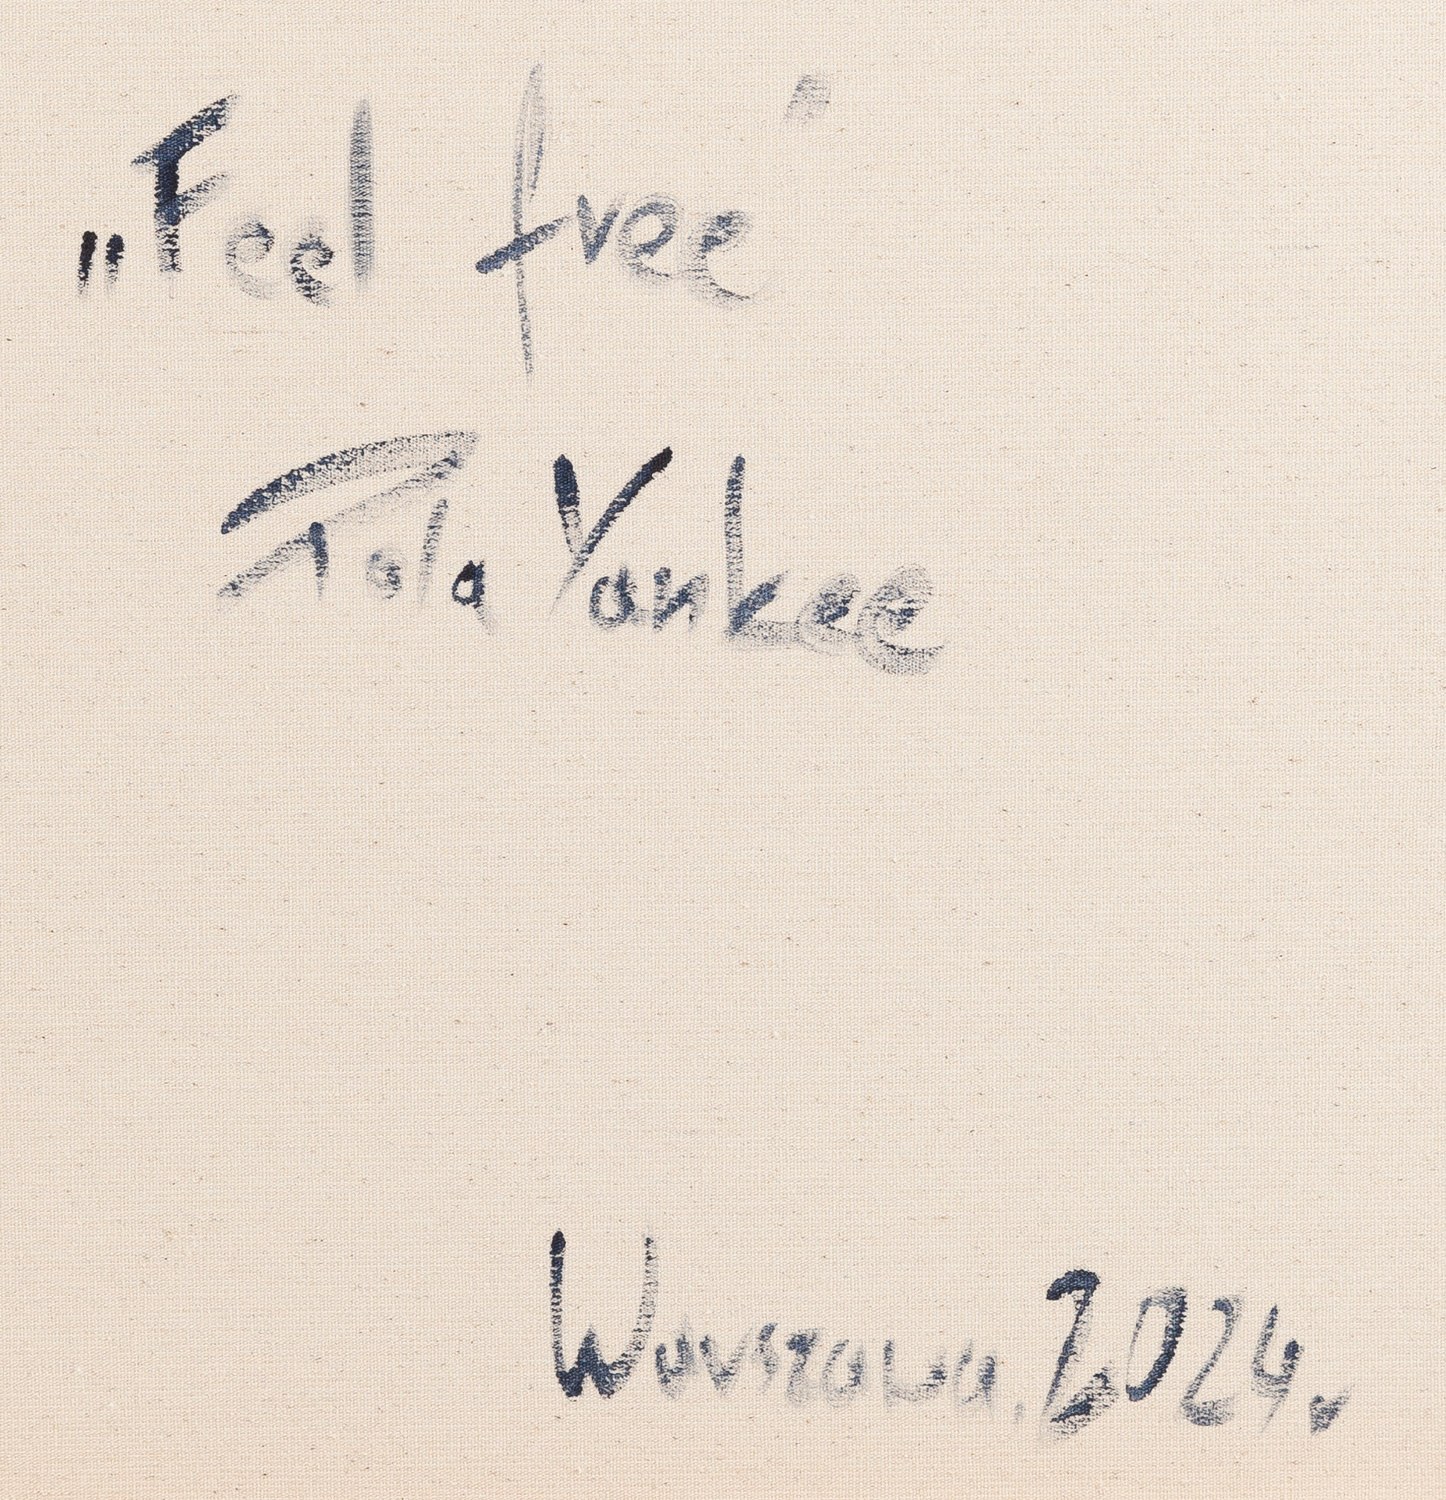 „Feel free"
Tola Yankee
Warszawa, 2024.